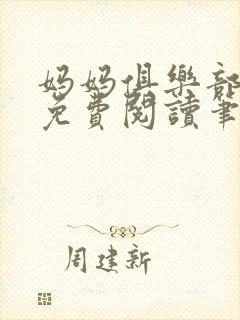 妈妈俱樂部
免費閱讀筆
周建新